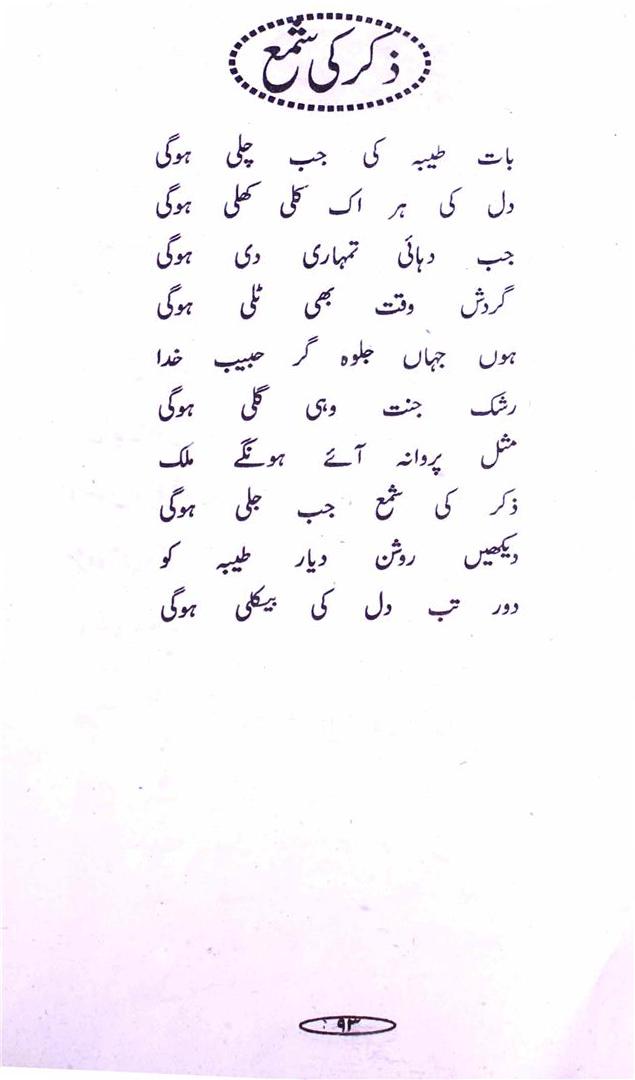 ذکر کی شمع
بات طیبہ کی جب چلی ہوگی
دل کی ہر اک کلی کھلی ہوگی
جب دہائی تمہاری دی ہوگی
گردش وقت بھی ٹلی ہوگی
ہوں جہاں جلوہ گر حبیب خدا
رشک جنت وہی گلی ہوگی
مثل پروانہ آئے ہونگے ملک
ذکر کی شمع جب جلی ہوگی
دیکھیں روشن دیار طیبہ کو
دور تب دل کی بیکلی ہوگی
۹۳